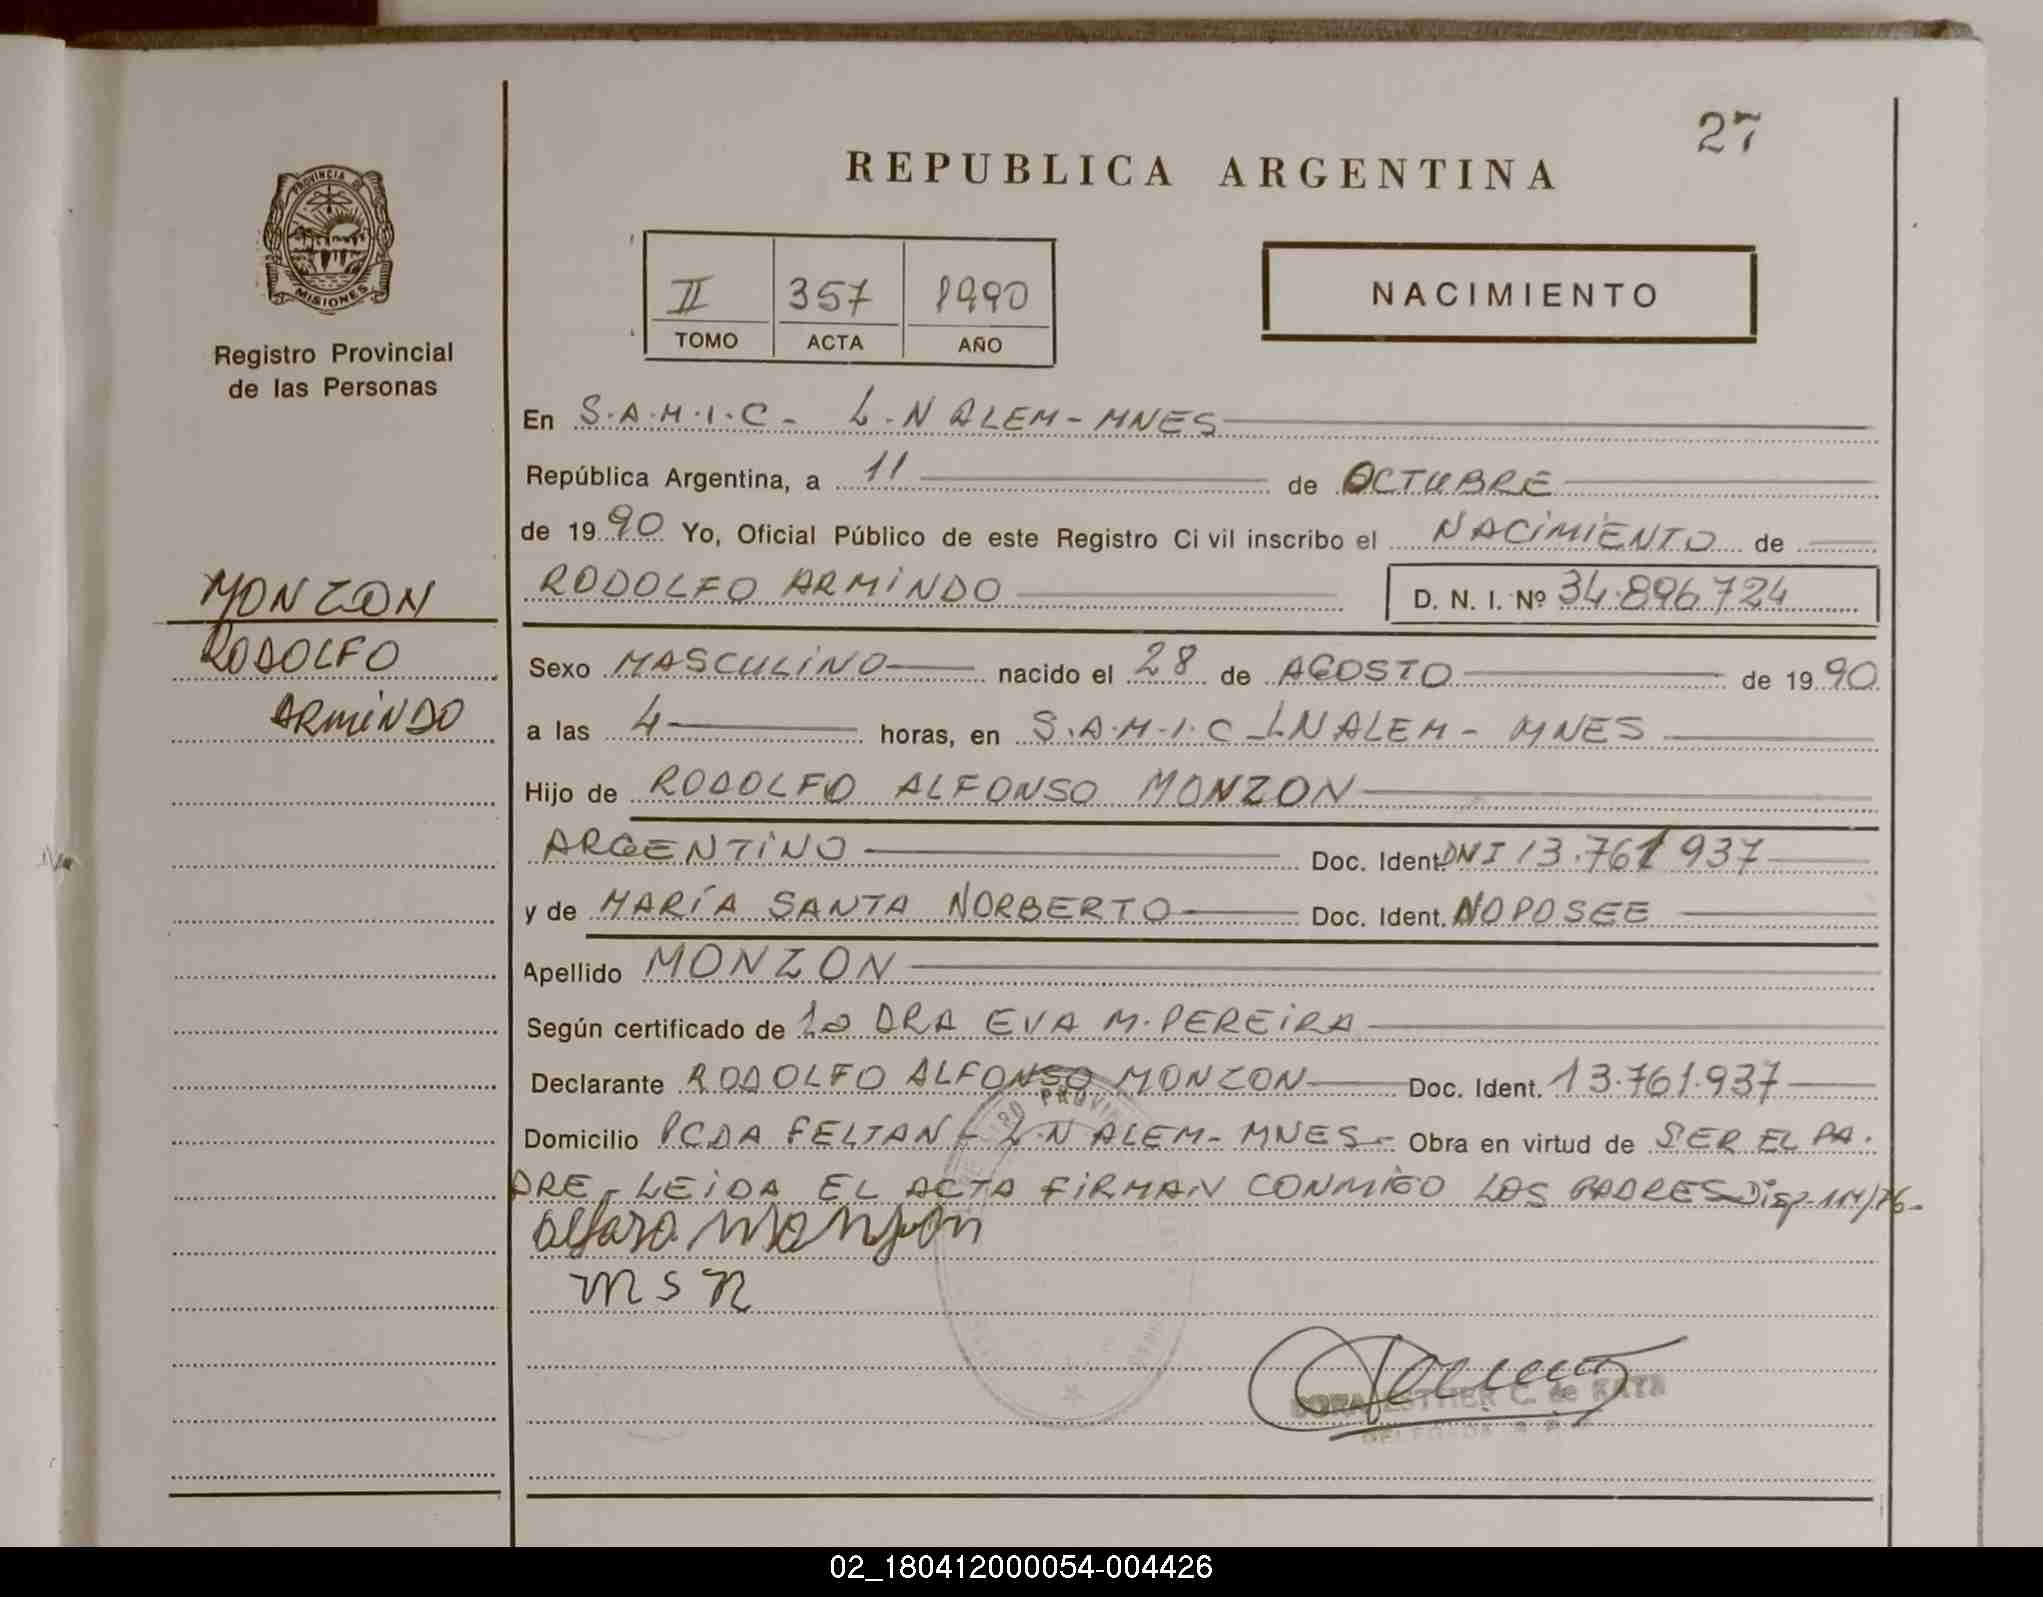 27
REPUBLICA ARGENTINA
PROVINCIA DE
MISIONES
Registro Provincial
de las Personas
II 357 1990
TOMO ACTA AÑO
NACIMIENTO
En S.A.M.I.C - L.N ALEM - MNES
República Argentina, a 11 de OCTUBRE
de 1990 Yo, Oficial Público de este Registro Civil inscribo el NACIMIENTO de
RODOLFO ARMINDO D. N. I. Nº 34.896.724
MONZON
RODOLFO
ARMINDO
Sexo MASCULINO nacido el 28 de AGOSTO de 1990
a las 4 horas, en S.A.M.I.C - LN ALEM - MNES
Hijo de RODOLFO ALFONSO MONZON
ARGENTINO Doc. Ident. DNI 13.761937
y de MARÍA SANTA NORBERTO Doc. Ident. NO POSEE
Apellido MONZON
Según certificado de la DRA EVA M. PEREIRA
Declarante RODOLFO ALFONSO MONZON Doc. Ident. 13.761.937
Domicilio PCDA FELTAN - L.N ALEM - MNES - Obra en virtud de SER EL PA.
DRE - LEIDA EL ACTA FIRMAN CONMIGO LOS PADRES
monzon
m s n
DORA ESTHER C. de
02_180412000054-004426